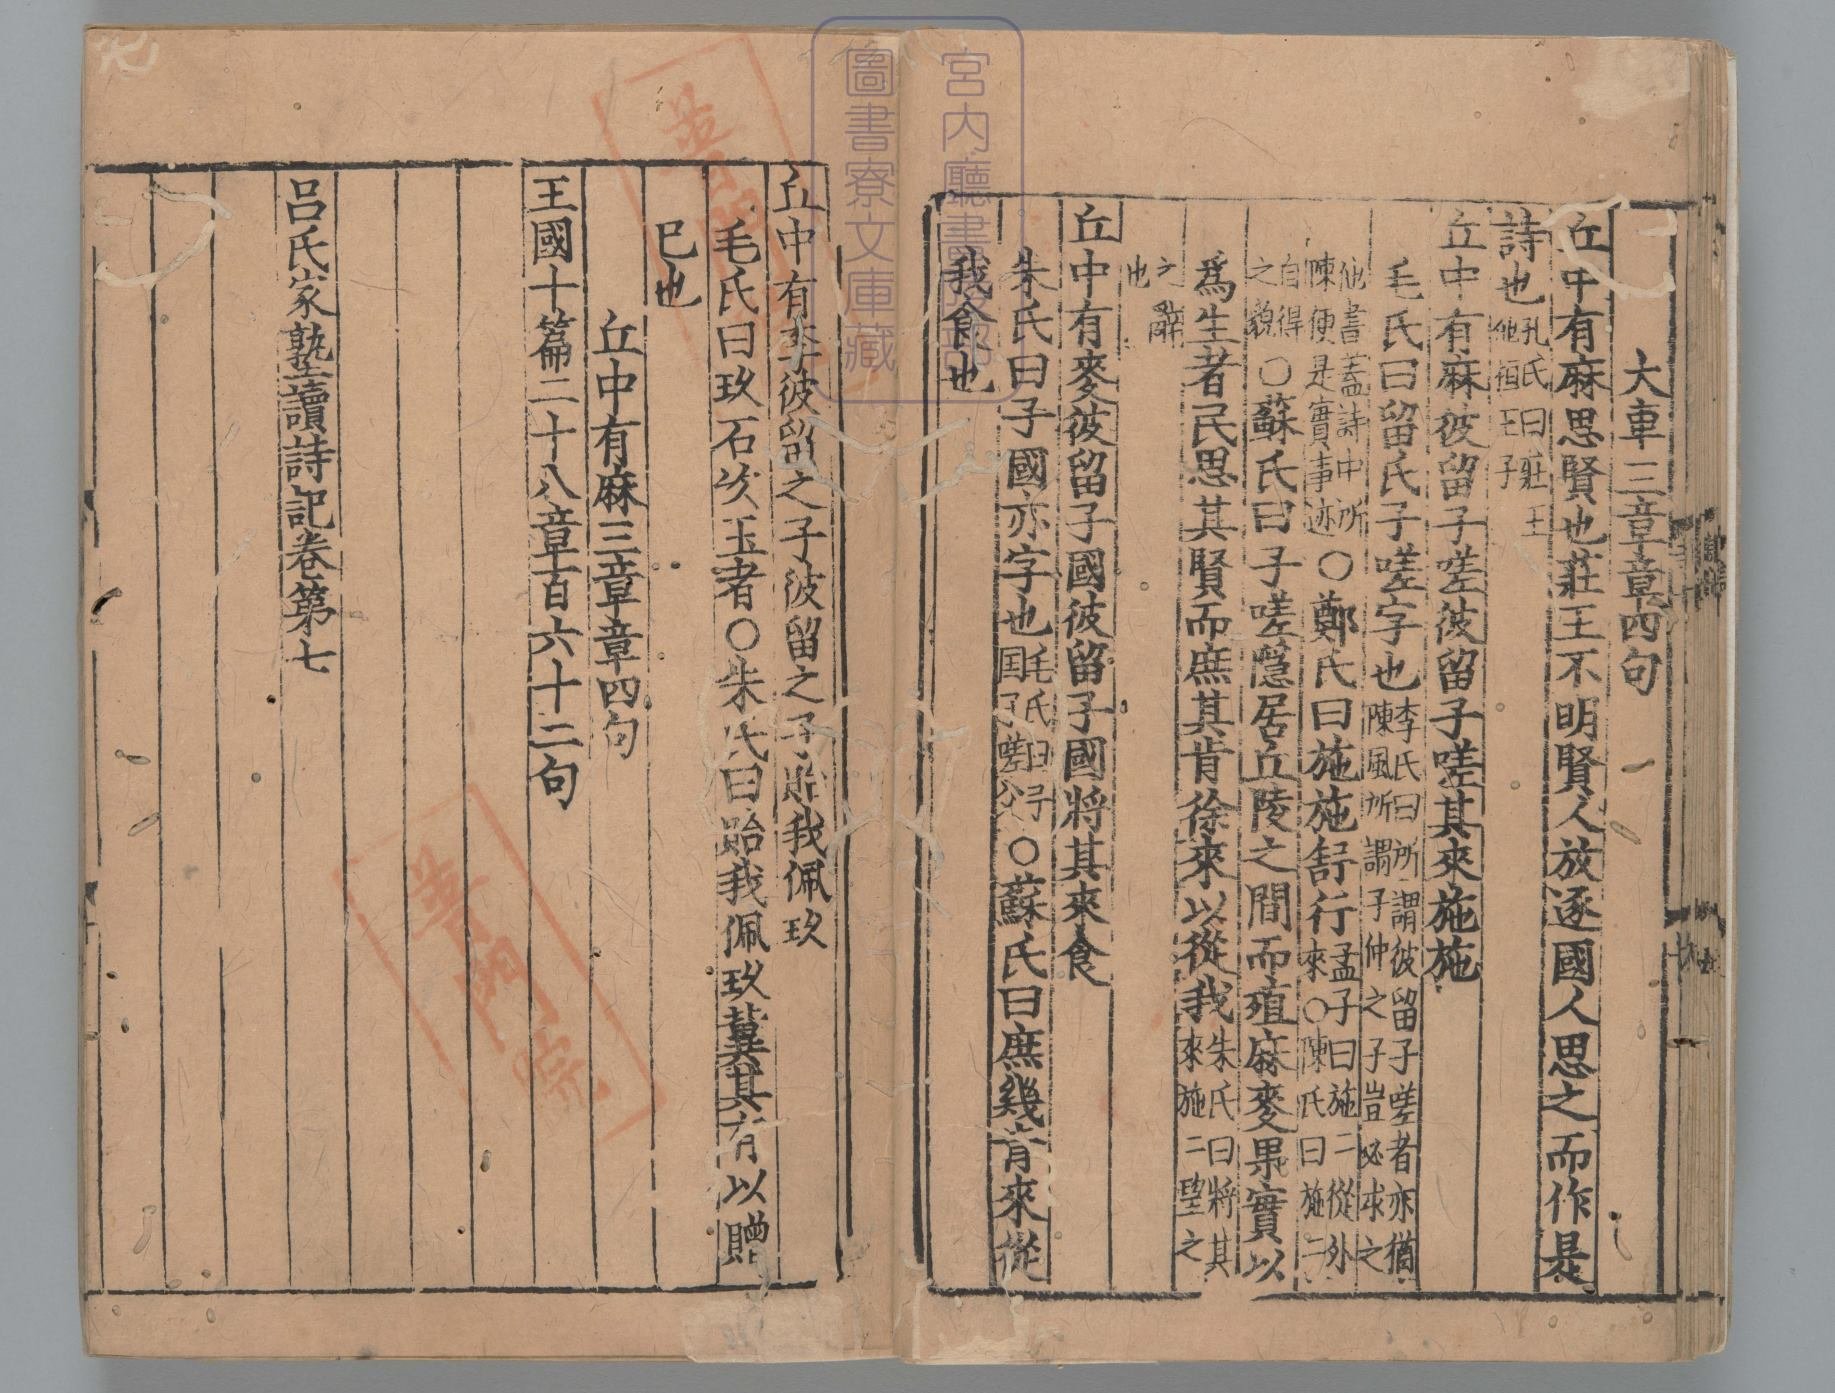 大車三章章四句
丘中有麻思賢也莊王不明賢人放逐國人思之而作是
詩也孔氏曰莊王他桓王子
丘中有麻彼留子嗟彼留子嗟其來施施
毛氏曰留氏子嗟字也李氏曰所謂彼留子嗟者亦猶陳風所謂子仲之子豈必求之
他書蓋詩中所陳便是實事迹○鄭氏曰施施舒行孟子曰施二從外來○陳氏曰施二
自得之貌○蘇氏曰子嗟隱居丘陵之間而殖麻麥果實以
爲生者民思其賢而庶其肯徐來以從我朱氏曰將其來施二望之
之辭也
丘中有麥彼留子國彼留子國將其來食
朱氏曰子國亦字也毛氏曰子国子嗟父○蘇氏曰庶幾肯來從
我食也
丘中有李彼留之子彼留之子貽我佩玖
毛氏曰玖石次玉者○朱氏曰貽我佩玖冀其有以贈
巳也
丘中有麻三章章四句
王國十篇二十八章百六十二句
呂氏家塾讀詩記卷第七
宮内廳書陵部
圖書寮文庫藏